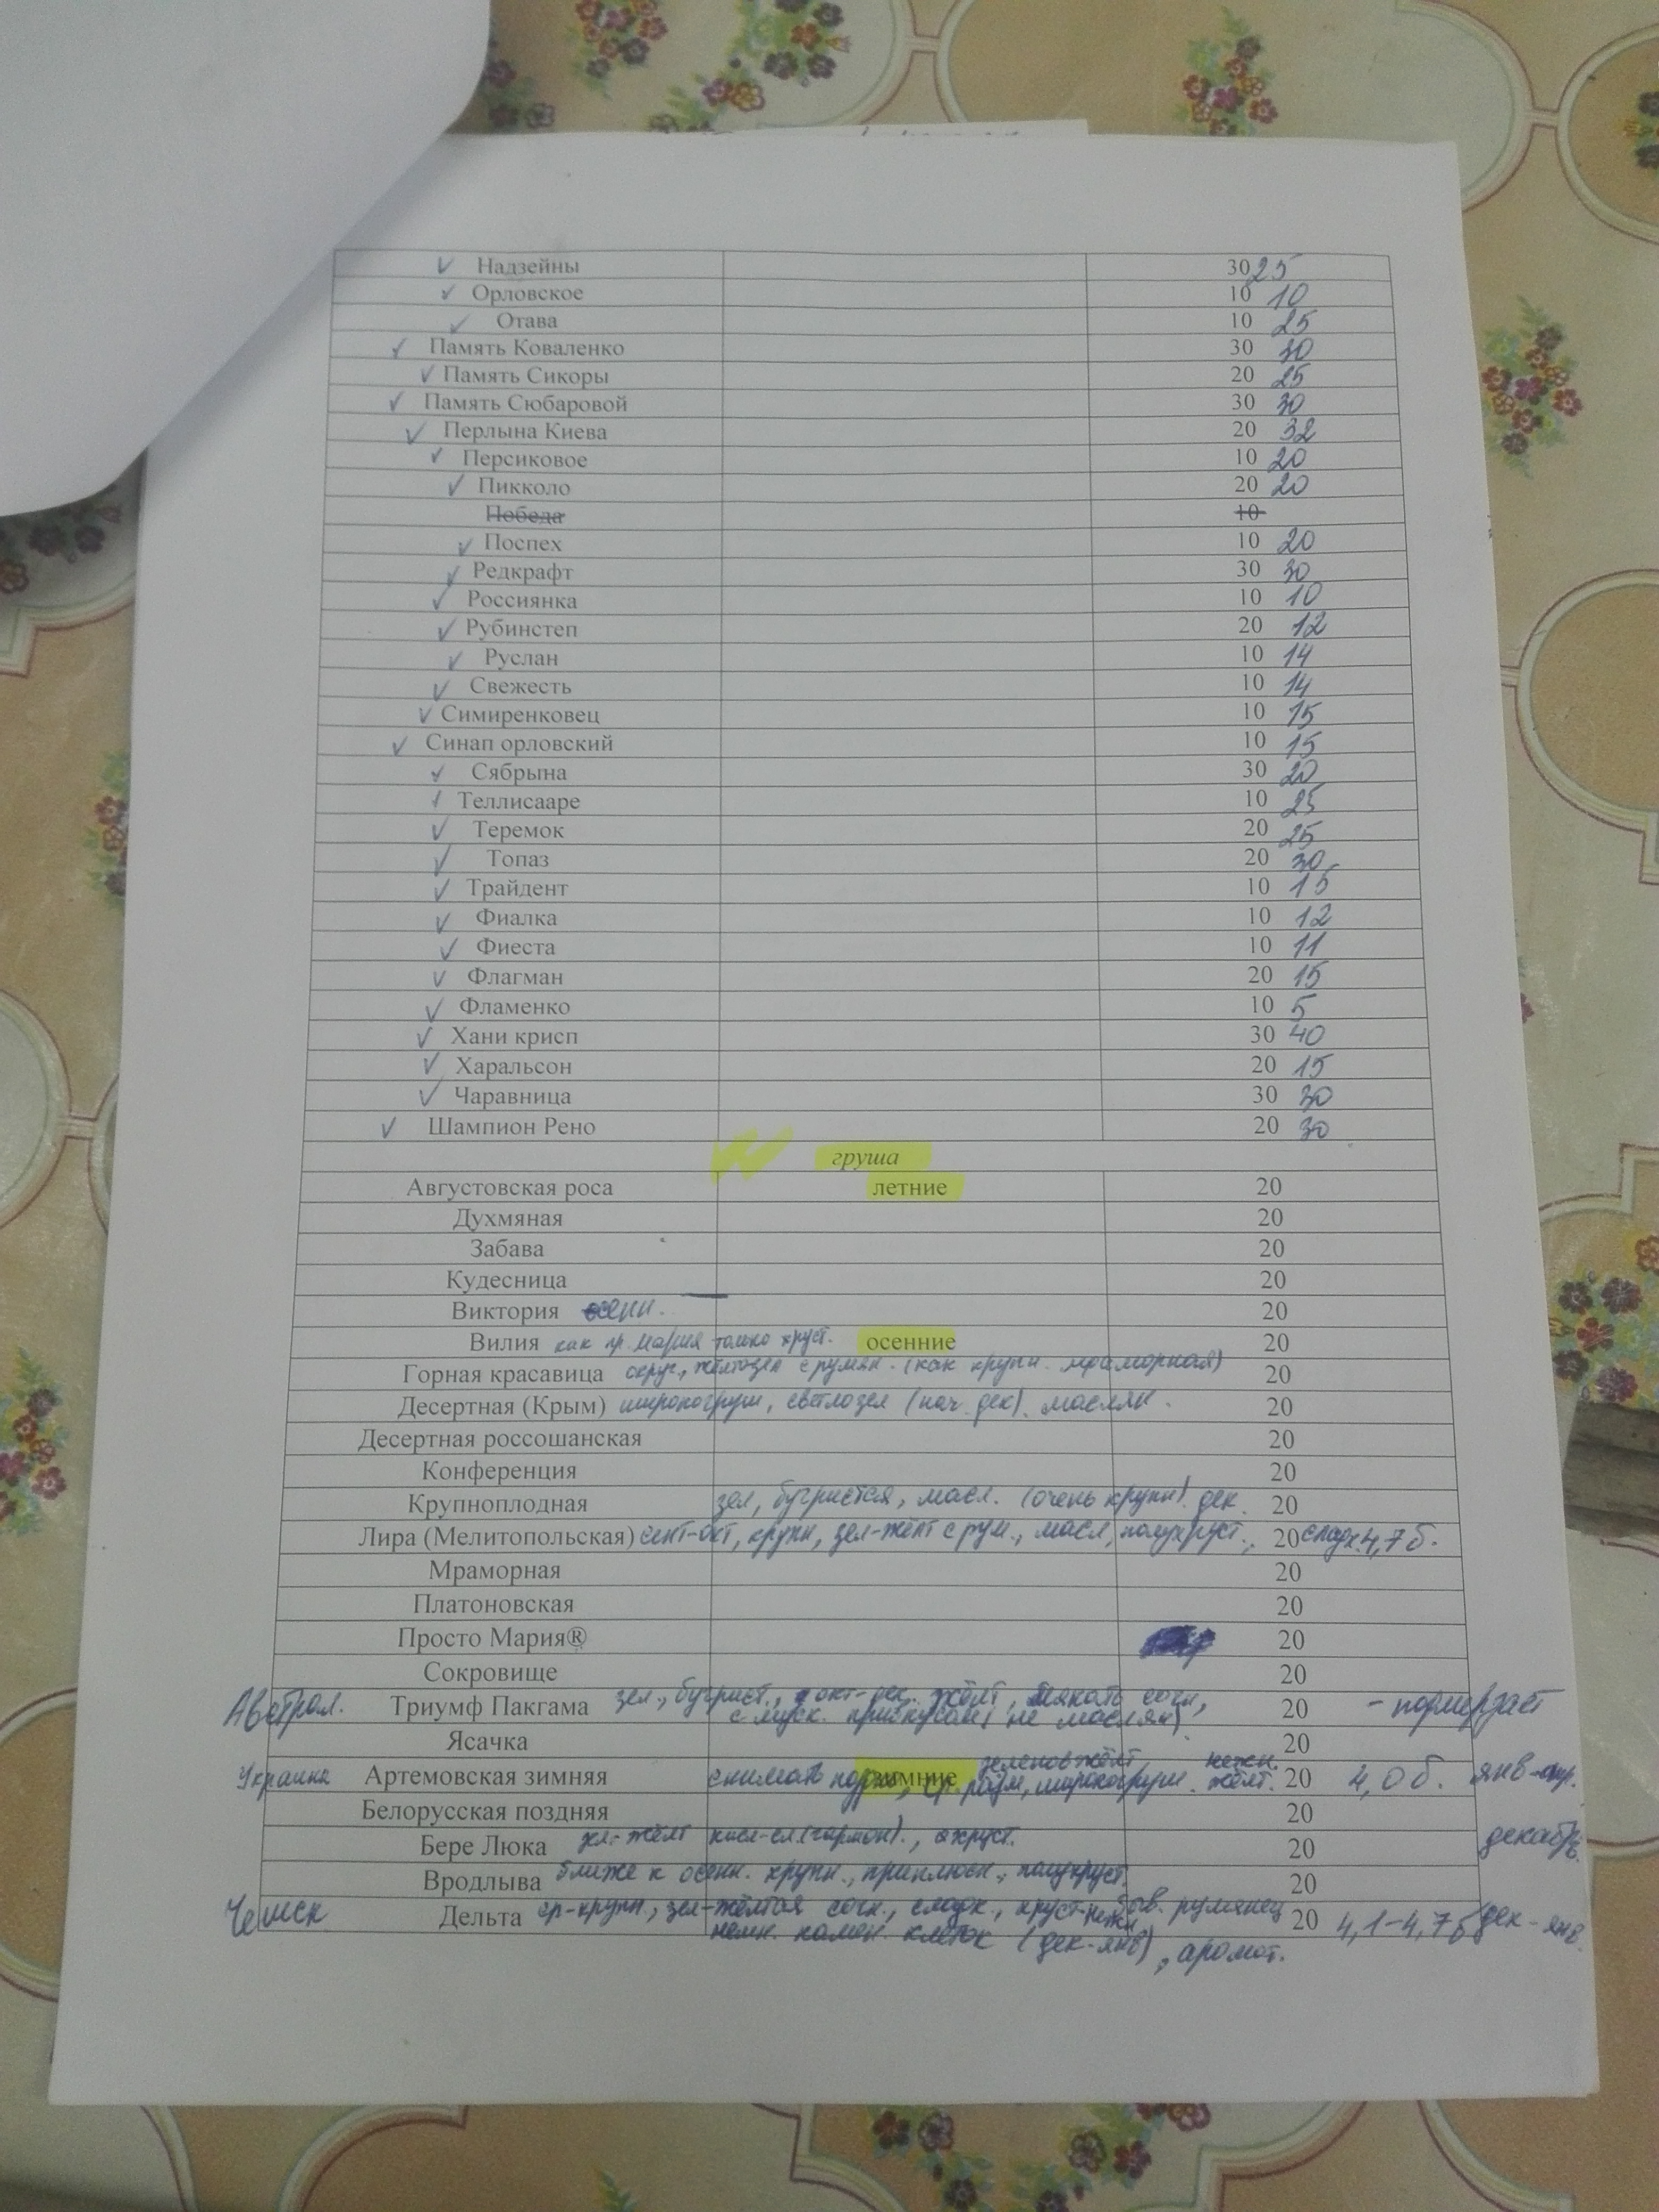 Надзейны 30 25
Орловское 10 10
Отава 10 25
Память Коваленко 30 30
Память Сикоры 20 25
Память Сюбаровой 30 30
Перлына Киева 20 32
Персиковое 10 20
Пикколо 20 20
Победа 10
Поспех 10 20
Редкрафт 30 30
Россиянка 10 10
Рубинстеп 20 12
Руслан 10 14
Свежесть 10 14
Симиренковец 10 15
Синап орловский 10 15
Сябрына 30 20
Теллисааре 10 25
Теремок 20 25
Топаз 20 30
Трайдент 10 15
Фиалка 10 12
Фиеста 10 11
Флагман 20 15
Фламенко 10 5
Хани крисп 30 40
Харальсон 20 15
Чаравница 30 30
Шампион Рено 20 30
груша
Августовская роса летние 20
Духмяная 20
Забава 20
Кудесница 20
Виктория осенн. 20
Вилия как пр. Мария только хруст. осенние 20
Горная красавица округ., желтозел с румян. (как крупн. мраморная) 20
Десертная (Крым) широкогруш, светлозел (нач. дек). маслян. 20
Десертная россошанская 20
Конференция 20
Крупноплодная зел, бугристая, масл. (очень крупн). дек. 20
Лира (Мелитопольская) сент-окт, крупн, зел-жёлт с рум., масл, полухруст., 20 сладк. 4,7 б.
Мраморная 20
Платоновская 20
Просто Мария® 20
Сокровище 20
Австрал. Триумф Пакгама зел., бугрист., окт-дек. жёлт, мякоть сочн, 20 - подмерзает
с муск. привкусом (не маслян)
Ясачка 20
зеленовжёлт нежн.
Украина Артемовская зимняя снимать зимние ср. разм, широкогруш. жёлт. 20 4,0 б. янв-
Белорусская поздняя 20
Бере Люка зел-жёлт кисл-сл (гармон)., хруст. 20 декабрь
Вродлыва ближе к осенн. крупн., приплюсн., полухруст. 20
Чешск Дельта ср-крупн., зел-жёлтая сочн., сладк., хруст-нежн. румянец 20 4,1-4,7 б дек-янв.
немн. камен. клеток (дек-янв), аромат.